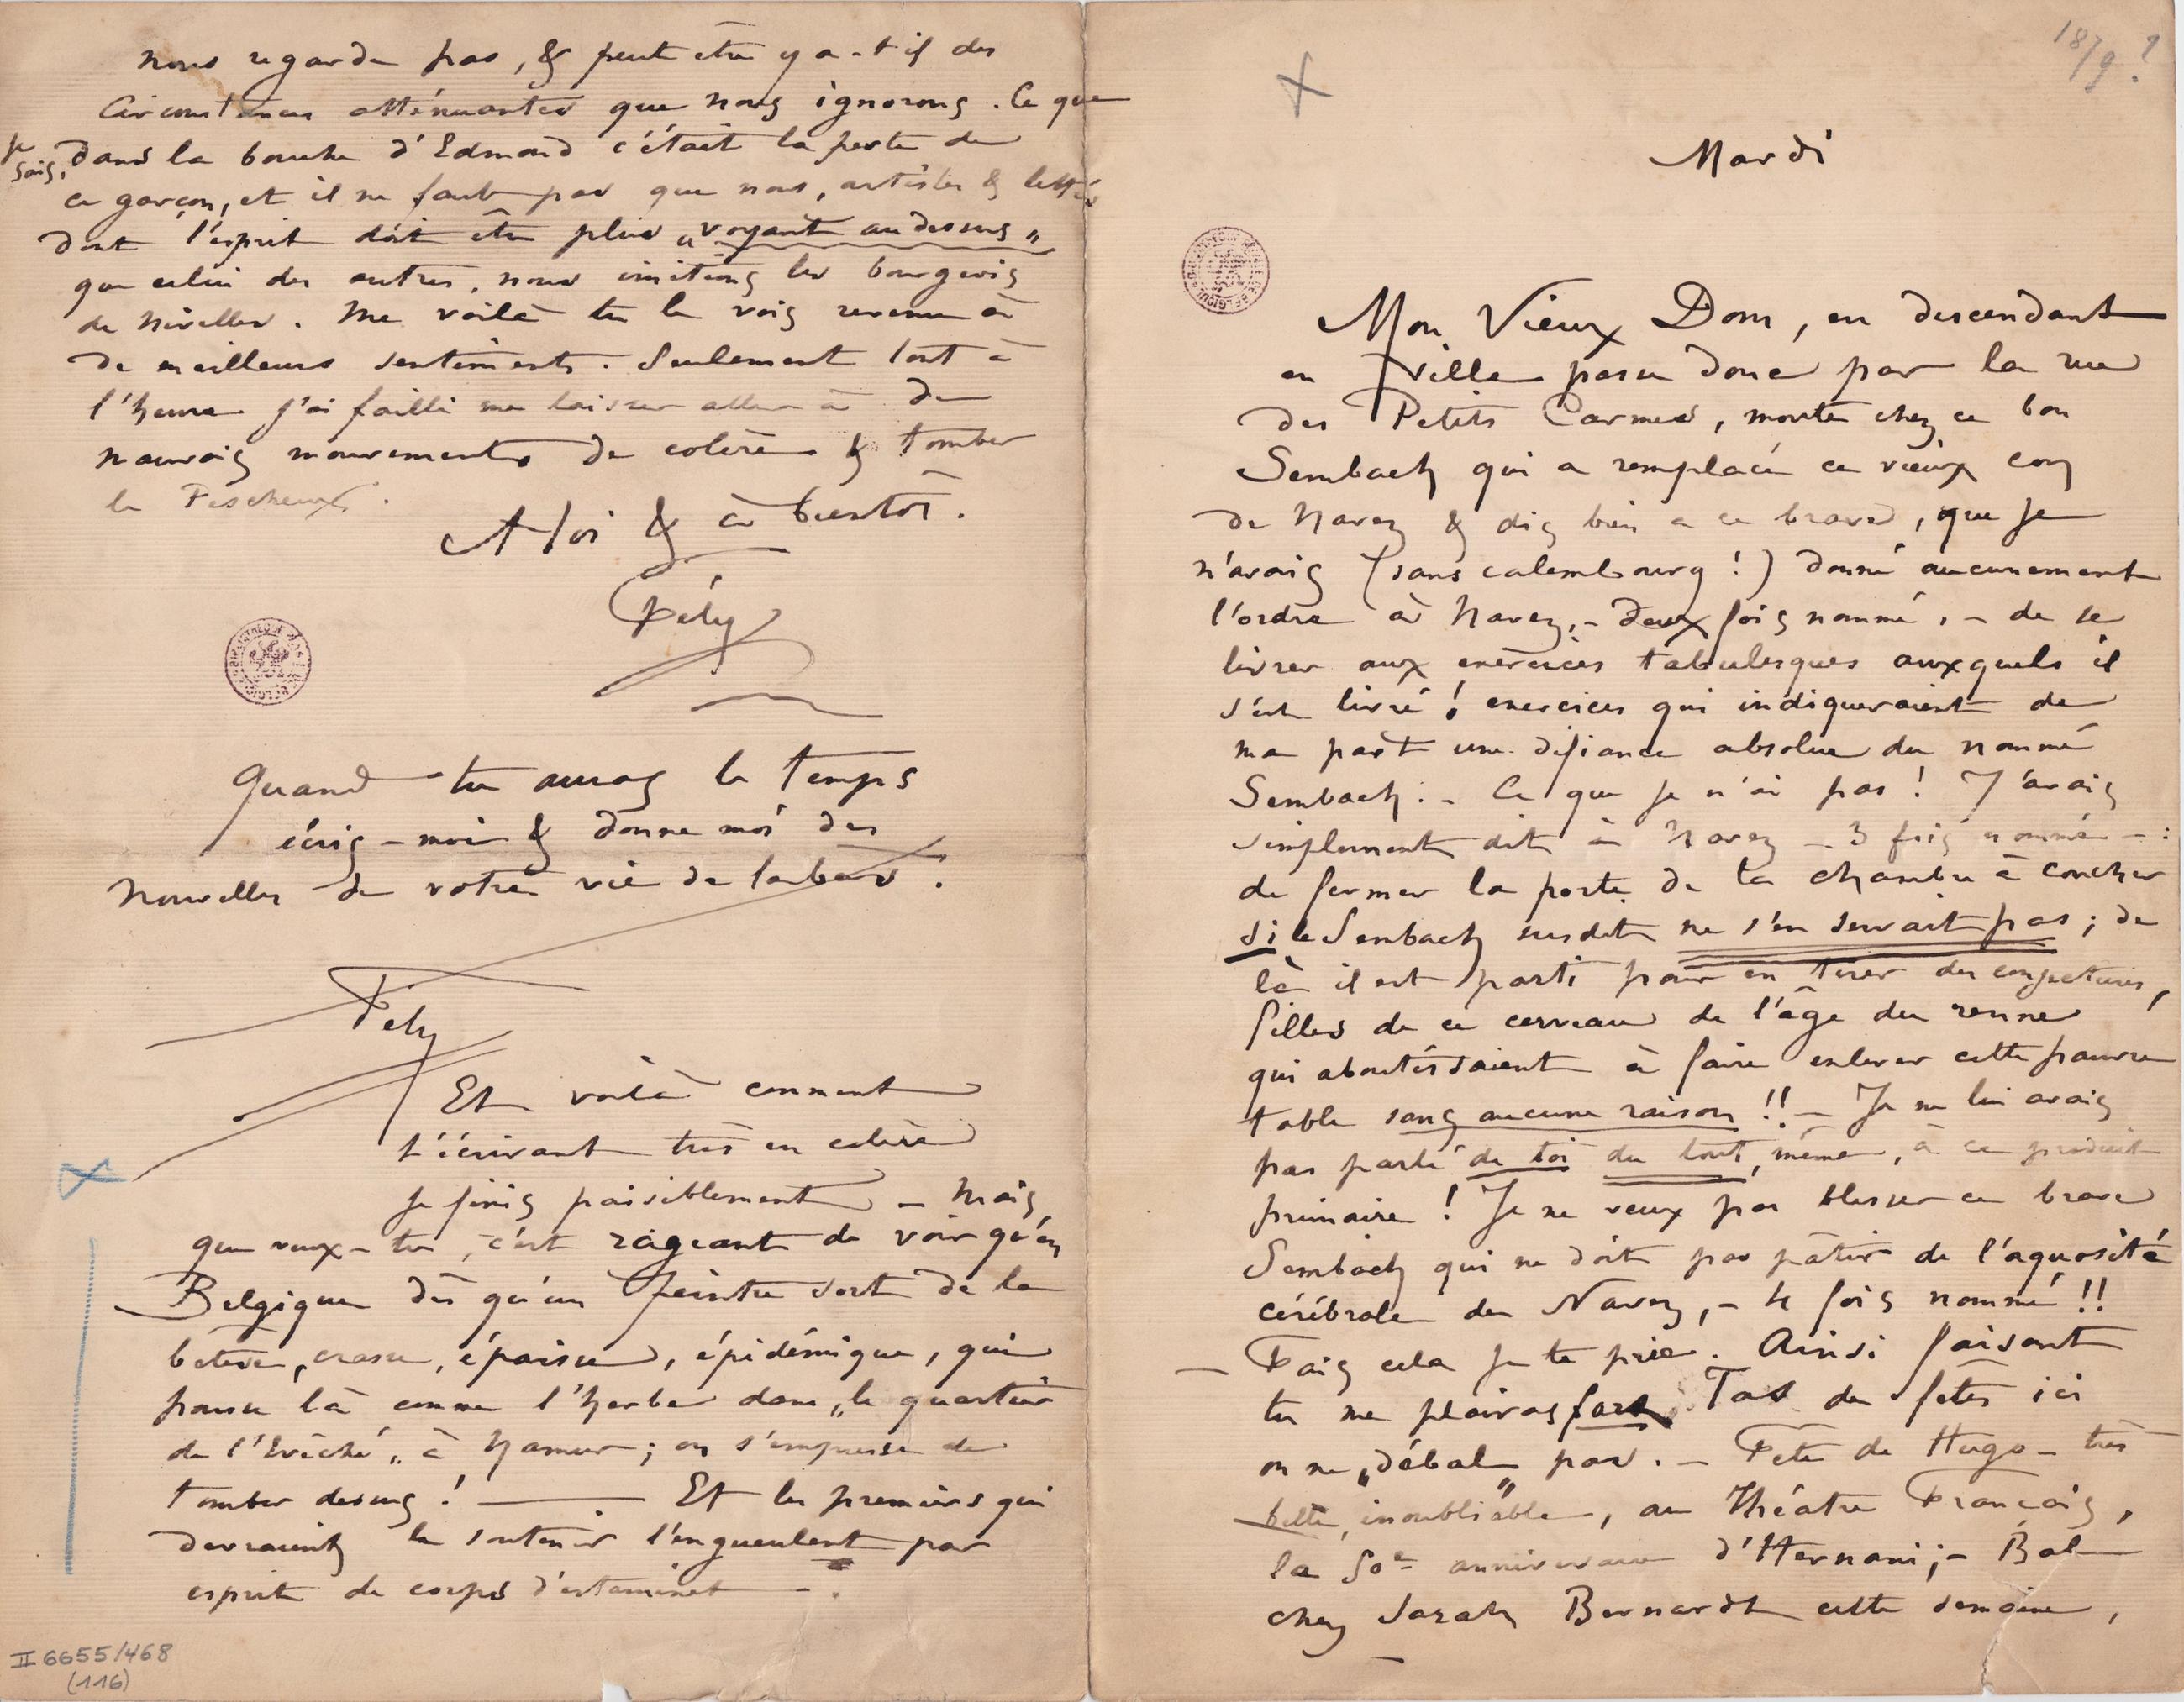 1879?
Mardi
Mon Vieux Dom, en descendant
en ville passe donc par la rue
des Petits Carmes, monte chez ce bon
Sembach qui a remplacé ce vieux con
de Navez & dis bien a ce brave, que je
n'avais (sans calembourg !) donné aucunement
l'ordre à Navez, – deux fois nommé, – de se
livrer aux exercices tabulesques auxquels il
s'est livré ! exercices qui indiqueraient de
ma part une défiance absolue du nommé
Sembach. – Ce que je n'ai pas ! J'avais
simplement dit à Navez – 3 fois nommé – :
de fermer la porte de ta chambre à coucher
si le Sembach susdit ne s'en servait pas ; de
là il est parti pour en tirer des conjectures,
filles de ce cerveau de l'âge du renne
qui aboutissaient à faire enlever cette pauvre
table sans aucune raison !! – Je ne lui avais
pas parlé de toi du tout, même, à ce produit
primaire ! Je ne veux pas blesser ce brave
Sembach qui ne doit pas pâtir de l'aquosité
cérébrale de Navez, – 4 fois nommé !!
– Fais cela je te prie. Ainsi faisant
tu me plairas fort. Tas de fêtes ici
on ne „débal" pas. – Fête de Hugo – très
belle, inoubliable, au Théatre Français,
la 50e anniversaire d'Hernani ; – Bal
chez Sarah Bernardt cette semaine,
nous regarde pas, & peut etre y a-t-il des
circonstances atténuantes que nous ignorons. Ce que
je sais, dans la bouche d'Edmond c'était la perte de
ce garçon, et il ne faut pas que nous, artistes & lettrés
dont l'esprit doit être plus „voyant au dessus„
que celui des autres, nous imitions les bourgeois
de Nivelles. Me voilà tu le vois revenu à
de meilleurs sentiments. Seulement tout à
l'heure j'ai failli me laisser aller à de
mauvais mouvements de colère & tomber
le Fescheux.
A toi & à bientôt.
Fély
Quand tu auras le temps
écris-moi & donne moi des
nouvelles de votre vie de labeur.
Fely
Et voilà comment
t'écrivant très en colère
je finis paisiblement – Mais
que veux-tu, c'est rageant de voir qu'en
Belgique dès qu'un peintre sort de la
bêtise, crasse, épaisse, épidémique, qui
pousse là comme l'herbe dans „le quartier
de l'Evêché„ à Namur ; on s'empresse de
tomber dessus ! — Et les premiers qui
devraient le soutenir l'engueulent par
esprit de corps d'estaminet –.
II 6655/468
(116)